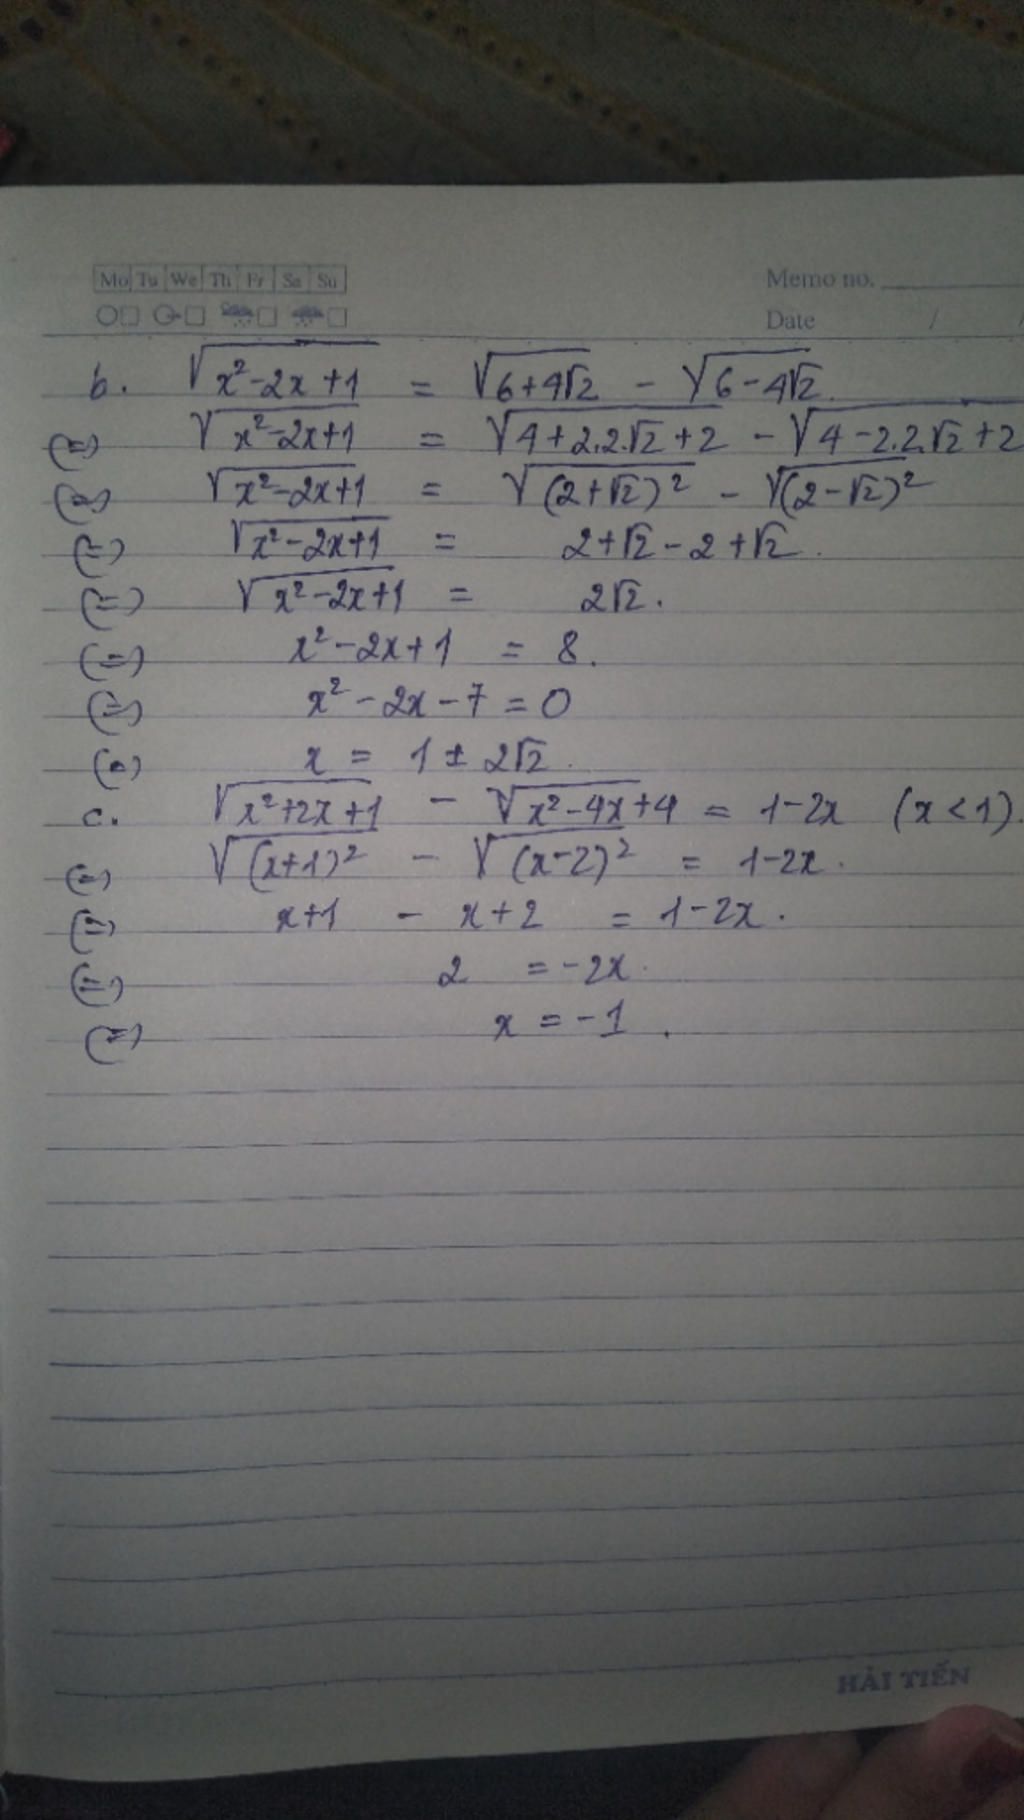 Mo Tu We Th Fr Sa Su
Memo no.
Date / /
b. √(x²-2x+1) = √(6+4√2) - √(6-4√2).
(=) √(x²-2x+1) = √(4+2.2.√2+2) - √(4-2.2√2+2)
(=) √(x²-2x+1) = √((2+√2)²) - √((2-√2)²)
(=) √(x²-2x+1) = 2+√2-2+√2.
(=) √(x²-2x+1) = 2√2.
(=) x²-2x+1 = 8.
(=) x²-2x-7=0
(=) x = 1±2√2.
c. √(x²+2x+1) - √(x²-4x+4) = 1-2x (x<1).
(=) √((x+1)²) - √((x-2)²) = 1-2x.
(=) x+1 - x+2 = 1-2x.
(=) 2 = -2x.
(=) x = -1.
HẢI TIẾN